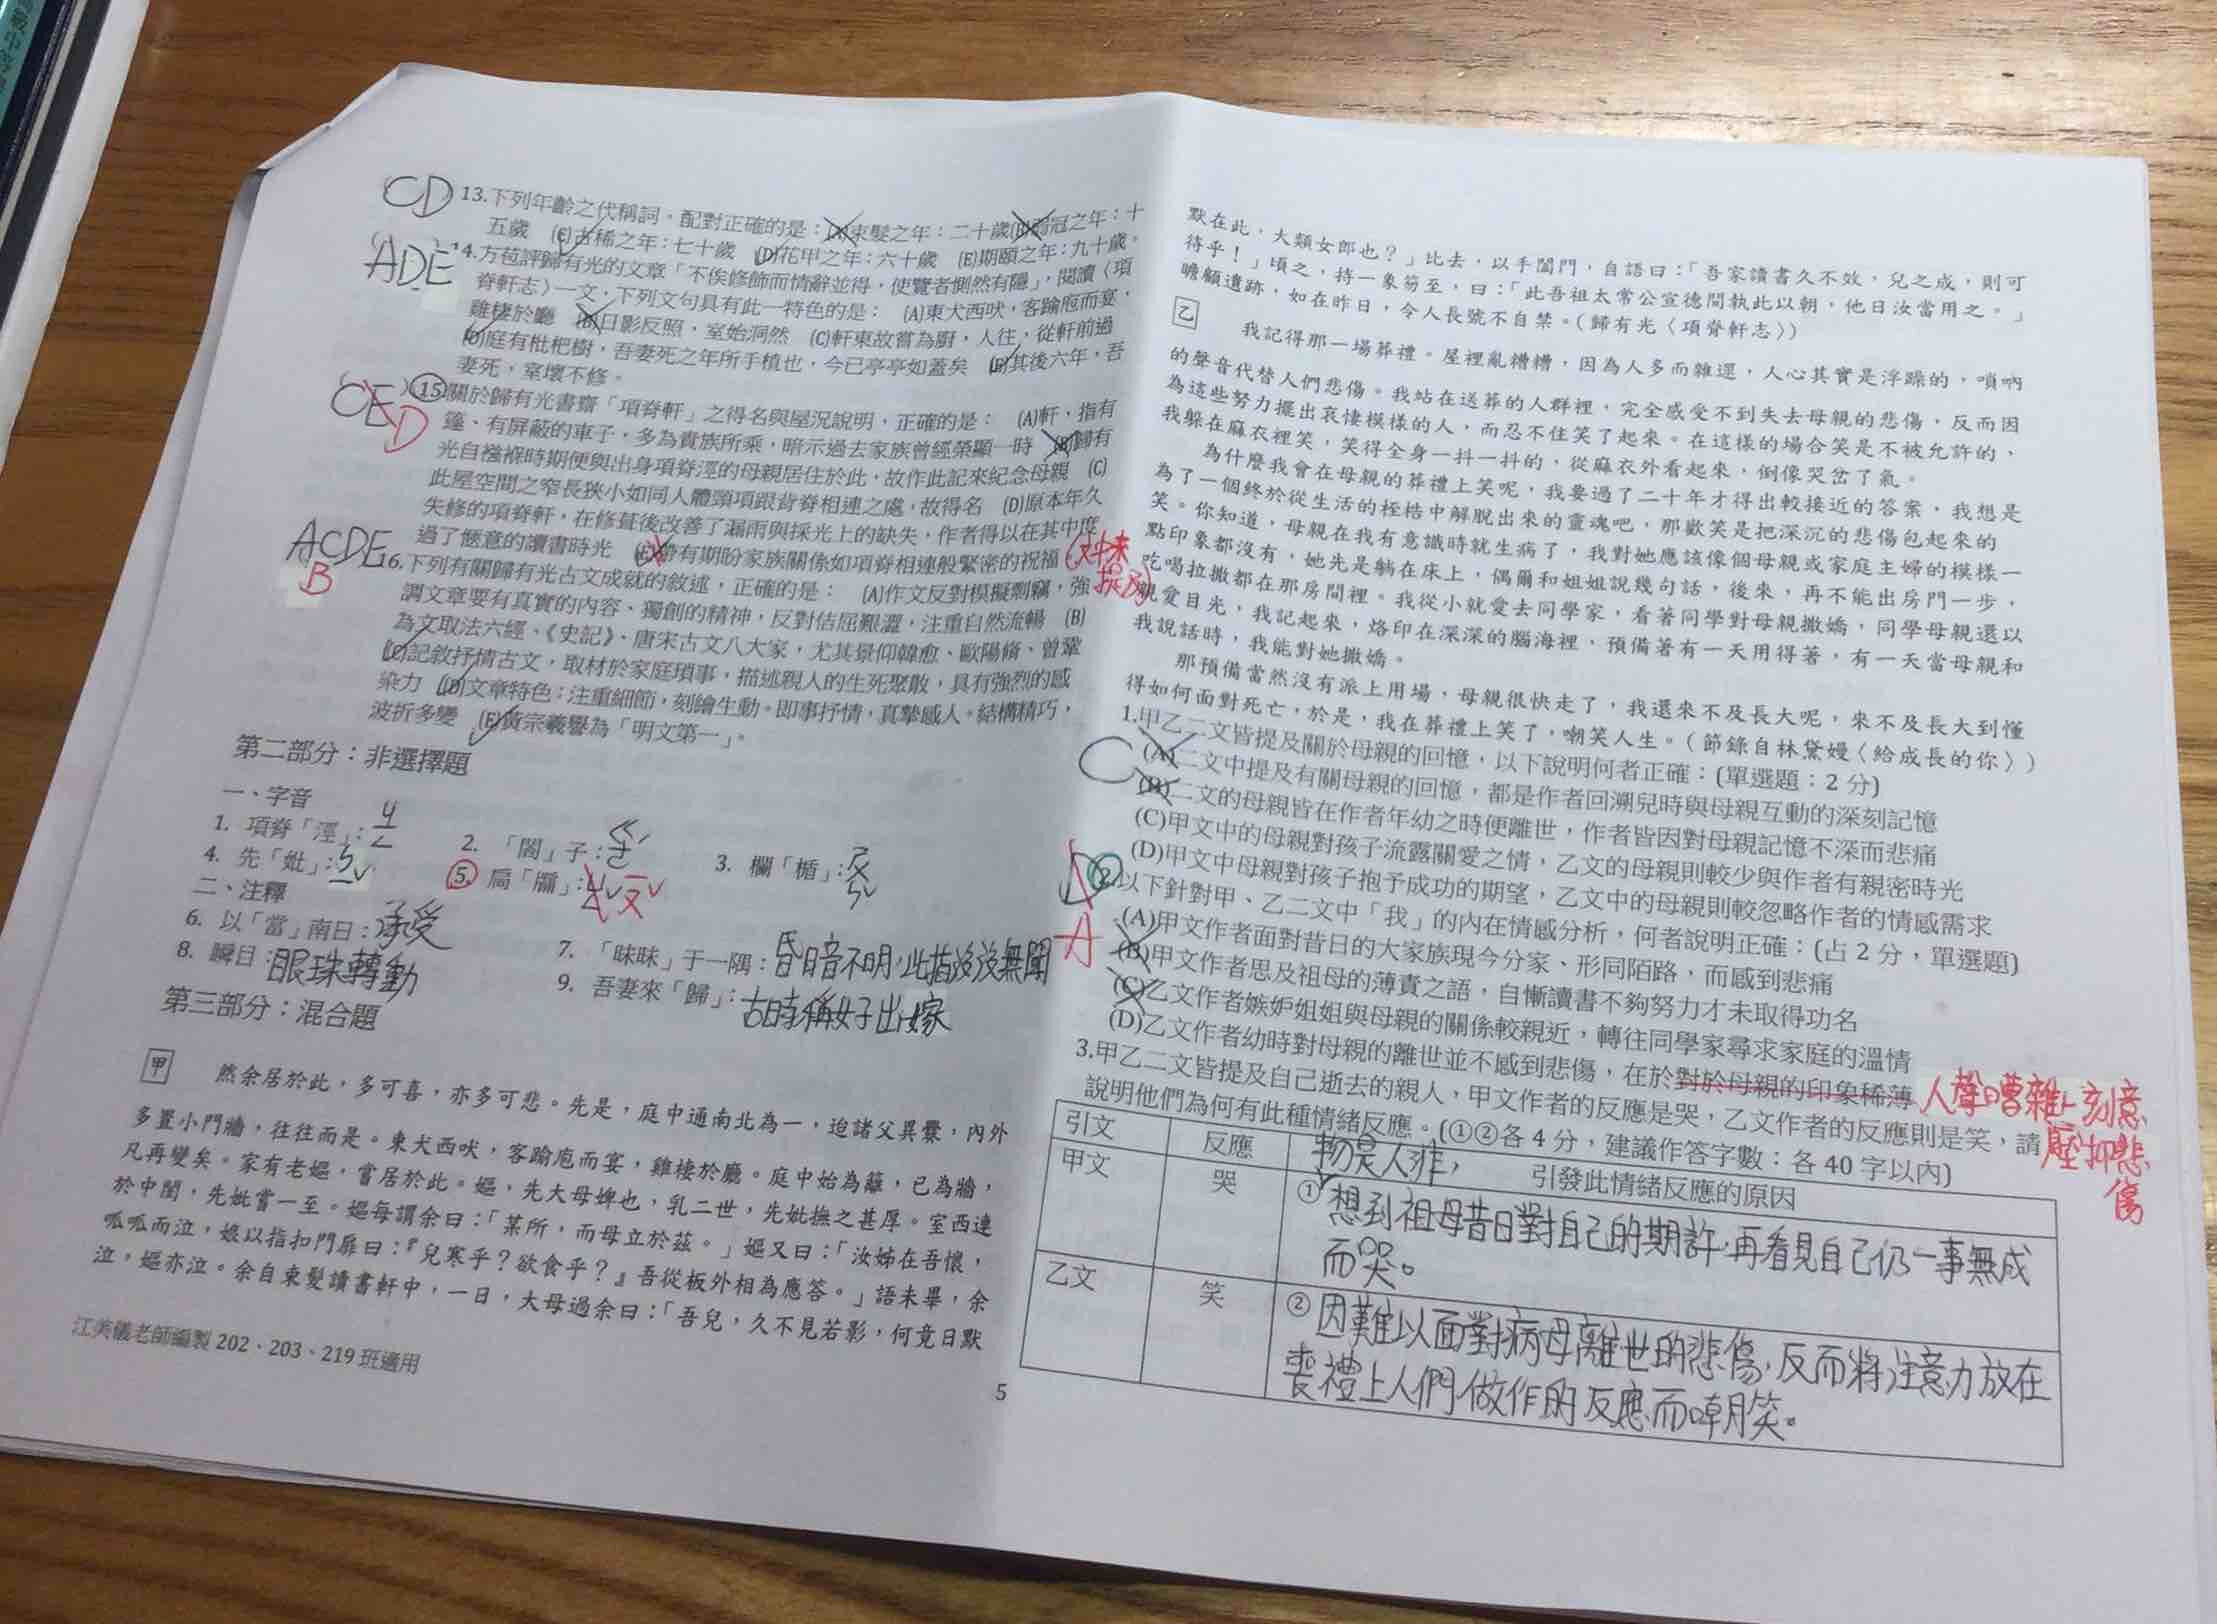 CD 13.下列年齡之代稱詞，配對正確的是：(A)束髮之年：二十歲(B)弱冠之年：十
五歲 (C)古稀之年：七十歲 (D)花甲之年：六十歲 (E)期頤之年：九十歲。
ADE 14.方苞評歸有光的文章「不俟修飾而情辭並得，使覽者惻然有隱」，閱讀〈項
脊軒志〉一文，下列文句具有此一特色的是： (A)東犬西吠，客踰庖而宴，
雞棲於廳 (B)日影反照，室始洞然 (C)軒東故嘗為廚，人往，從軒前過
(D)庭有枇杷樹，吾妻死之年所手植也，今已亭亭如蓋矣 (E)其後六年，吾
妻死，室壞不修。
CE D 15.關於歸有光書齋「項脊軒」之得名與屋況說明，正確的是： (A)軒，指有
篷、有屏蔽的車子，多為貴族所乘，暗示過去家族曾經榮顯一時 (B)歸有
光自襁褓時期便與出身項脊涇的母親居住於此，故作此記來紀念母親 (C)
此屋空間之窄長狹小如同人體頸項跟背脊相連之處，故得名 (D)原本年久
失修的項脊軒，在修葺後改善了漏雨與採光上的缺失，作者得以在其中度
過了愜意的讀書時光 (E)帶有期盼家族關係如項脊相連般緊密的祝福 (文中未
提及)
ACDE B 16.下列有關歸有光古文成就的敘述，正確的是： (A)作文反對模擬剽竊，強
調文章要有真實的內容、獨創的精神，反對佶屈艱澀，注重自然流暢 (B)
為文取法六經、《史記》、唐宋古文八大家，尤其景仰韓愈、歐陽脩、曾鞏
(C)記敘抒情古文，取材於家庭瑣事，描述親人的生死聚散，具有強烈的感
染力 (D)文章特色：注重細節，刻繪生動。即事抒情，真摯感人。結構精巧，
波折多變 (E)黃宗羲譽為「明文第一」。
第二部分：非選擇題
一、字音
1. 項脊「涇」：ㄐㄥ 2. 「閤」子：ㄍㄜˊ 3. 欄「楯」：
4. 先「妣」：ㄅㄧˇ 5. 扃「牖」：ㄧㄡˇ
二、注釋
6. 以「當」南日：承受 7. 「昧昧」于一隅：昏暗不明，此指沒沒無聞
8. 瞬目：眼珠轉動 9. 吾妻來「歸」：古時稱女子出嫁
第三部分：混合題
甲 然余居於此，多可喜，亦多可悲。先是，庭中通南北為一，迨諸父異爨，內外
多置小門牆，往往而是。東犬西吠，客踰庖而宴，雞棲於廳。庭中始為籬，已為牆，
凡再變矣。家有老嫗，嘗居於此。嫗，先大母婢也，乳二世，先妣撫之甚厚。室西連
於中閨，先妣嘗一至。嫗每謂余曰：「某所，而母立於茲。」嫗又曰：「汝姊在吾懷，
呱呱而泣，娘以指扣門扉曰：『兒寒乎？欲食乎？』吾從板外相為應答。」語未畢，余
泣，嫗亦泣。余自束髮讀書軒中，一日，大母過余曰：「吾兒，久不見若影，何竟日默
江美儀老師編製 202、203、219 班適用
5
默在此，大類女郎也？」比去，以手闔門，自語曰：「吾家讀書久不效，兒之成，則可
待乎！」頃之，持一象笏至，曰：「此吾祖太常公宣德間執此以朝，他日汝當用之。」
瞻顧遺跡，如在昨日，令人長號不自禁。（歸有光〈項脊軒志〉）
乙
我記得那一場葬禮。屋裡亂糟糟，因為人多而雜遝，人心其實是浮躁的，嗩吶
的聲音代替人們悲傷。我站在送葬的人群裡，完全感受不到失去母親的悲傷，反而因
為這些努力擺出哀悽模樣的人，而忍不住笑了起來。在這樣的場合笑是不被允許的，
我躲在麻衣裡笑，笑得全身一抖一抖的，從麻衣外看起來，倒像哭岔了氣。
為什麼我會在母親的葬禮上笑呢，我要過了二十年才得出較接近的答案，我想是
為了一個終於從生活的桎梏中解脫出來的靈魂吧，那歡笑是把深沉的悲傷包起來的
笑。你知道，母親在我有意識時就生病了，我對她應該像個母親或家庭主婦的模樣一
點印象都沒有，她先是躺在床上，偶爾和姐姐說幾句話，後來，再不能出房門一步，
吃喝拉撒都在那房間裡。我從小就愛去同學家，看著同學對母親撒嬌，同學母親還以
親愛目光，我記起來，烙印在深深的腦海裡，預備著有一天用得著，有一天當母親和
我說話時，我能對她撒嬌。
那預備當然沒有派上用場，母親很快走了，我還來不及長大呢，來不及長大到懂
得如何面對死亡，於是，我在葬禮上笑了，嘲笑人生。（節錄自林黛嫚〈給成長的你〉）
C 1.甲乙二文皆提及關於母親的回憶，以下說明何者正確：(單選題：2 分)
(A)二文中提及有關母親的回憶，都是作者回溯兒時與母親互動的深刻記憶
(B)二文的母親皆在作者年幼之時便離世，作者皆因對母親記憶不深而悲痛
(C)甲文中的母親對孩子流露關愛之情，乙文的母親則較少與作者有親密時光
(D)甲文中母親對孩子抱予成功的期望，乙文中的母親則較忽略作者的情感需求
D A 2.以下針對甲、乙二文中「我」的內在情感分析，何者說明正確：(占 2 分，單選題)
(A)甲文作者面對昔日的大家族現今分家、形同陌路，而感到悲痛
(B)甲文作者思及祖母的薄責之語，自慚讀書不夠努力才未取得功名
(C)乙文作者嫉妒姐姐與母親的關係較親近，轉往同學家尋求家庭的溫情
(D)乙文作者幼時對母親的離世並不感到悲傷，在於對於母親的印象稀薄 人聲嘈雜、刻意
壓抑悲
傷
3.甲乙二文皆提及自己逝去的親人，甲文作者的反應是哭，乙文作者的反應則是笑，請
說明他們為何有此種情緒反應。(①②各 4 分，建議作答字數：各 40 字以內)
引文 反應 引發此情緒反應的原因
甲文 哭 ① 物是人非，想到祖母昔日對自己的期許，再看見自己仍一事無成
而哭。
乙文 笑 ② 因難以面對病母離世的悲傷，反而將注意力放在
喪禮上人們做作的反應而嘲笑。